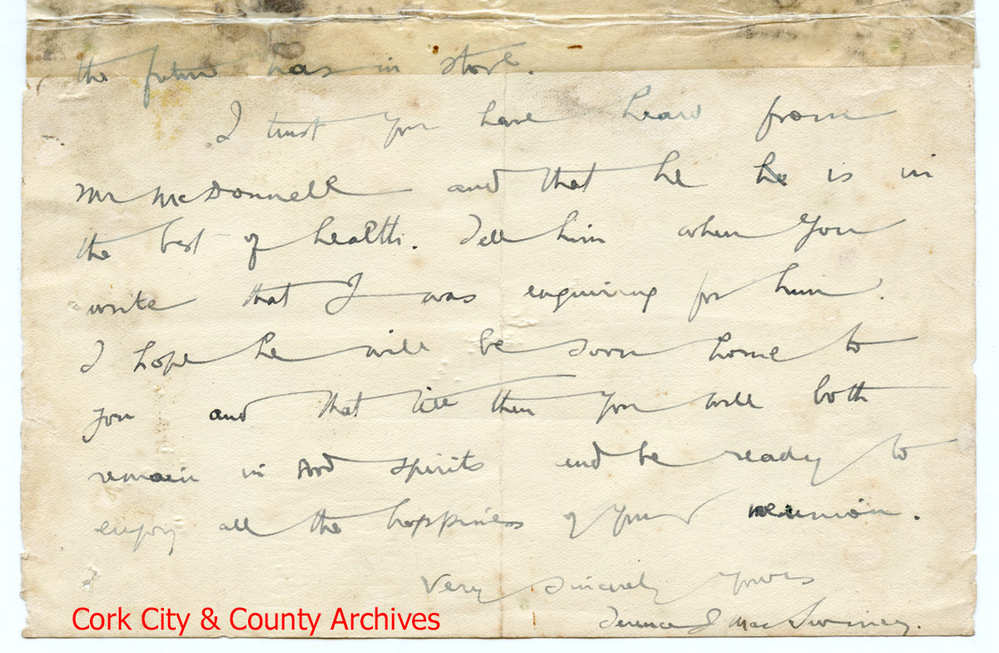 the future has in store.
I trust you have heard from
Mr McDonnell and that he he is in
the best of health. Tell him when you
write that I was enquiring for him.
I hope he will be soon home to
you and that till then you will both
remain in good spirits and be ready to
enjoy all the happiness of your reunion.
Very sincerely yours
Terence J MacSwiney.
Cork City & County Archives